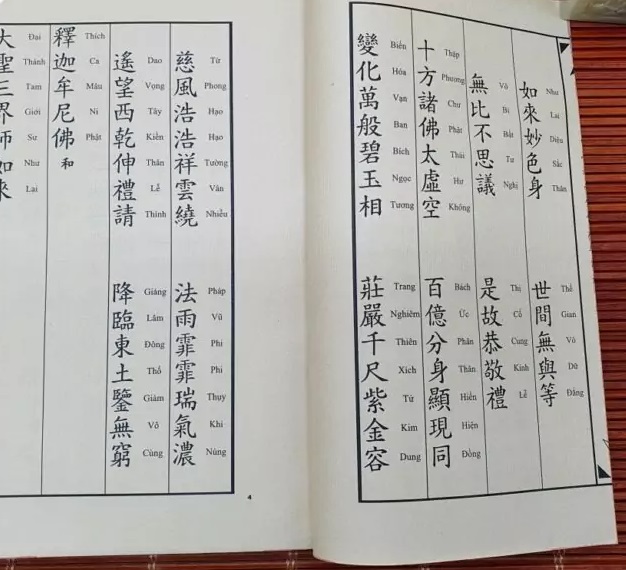 如來妙色身
Như Lai Diệu Sắc Thân
世間無與等
Thế Gian Vô Dữ Đẳng
無比不思議
Vô Bỉ Bất Tư Nghị
是故恭敬禮
Thị Cố Cung Kính Lễ
十方諸佛太虛空
Thập Phương Chư Phật Thái Hư Không
百億分身顯現同
Bách Ức Phân Thân Hiển Hiện Đồng
變化萬般碧玉相
Biến Hóa Vạn Ban Bích Ngọc Tương
莊嚴千尺紫金容
Trang Nghiêm Thiên Xích Tử Kim Dung
慈風浩浩祥雲繞
Từ Phong Hạo Hạo Tường Vân Nhiễu
法雨霏霏瑞氣濃
Pháp Vũ Phi Phi Thụy Khí Nùng
遙望西乾伸禮請
Dao Vọng Tây Kiền Thân Lễ Thỉnh
降臨東土鑒無窮
Giáng Lâm Đông Thổ Giám Vô Cùng
釋迦牟尼佛和
Thích Ca Mâu Ni Phật
大聖三界師如來
Đại Thánh Tam Giới Sư Như Lai
4